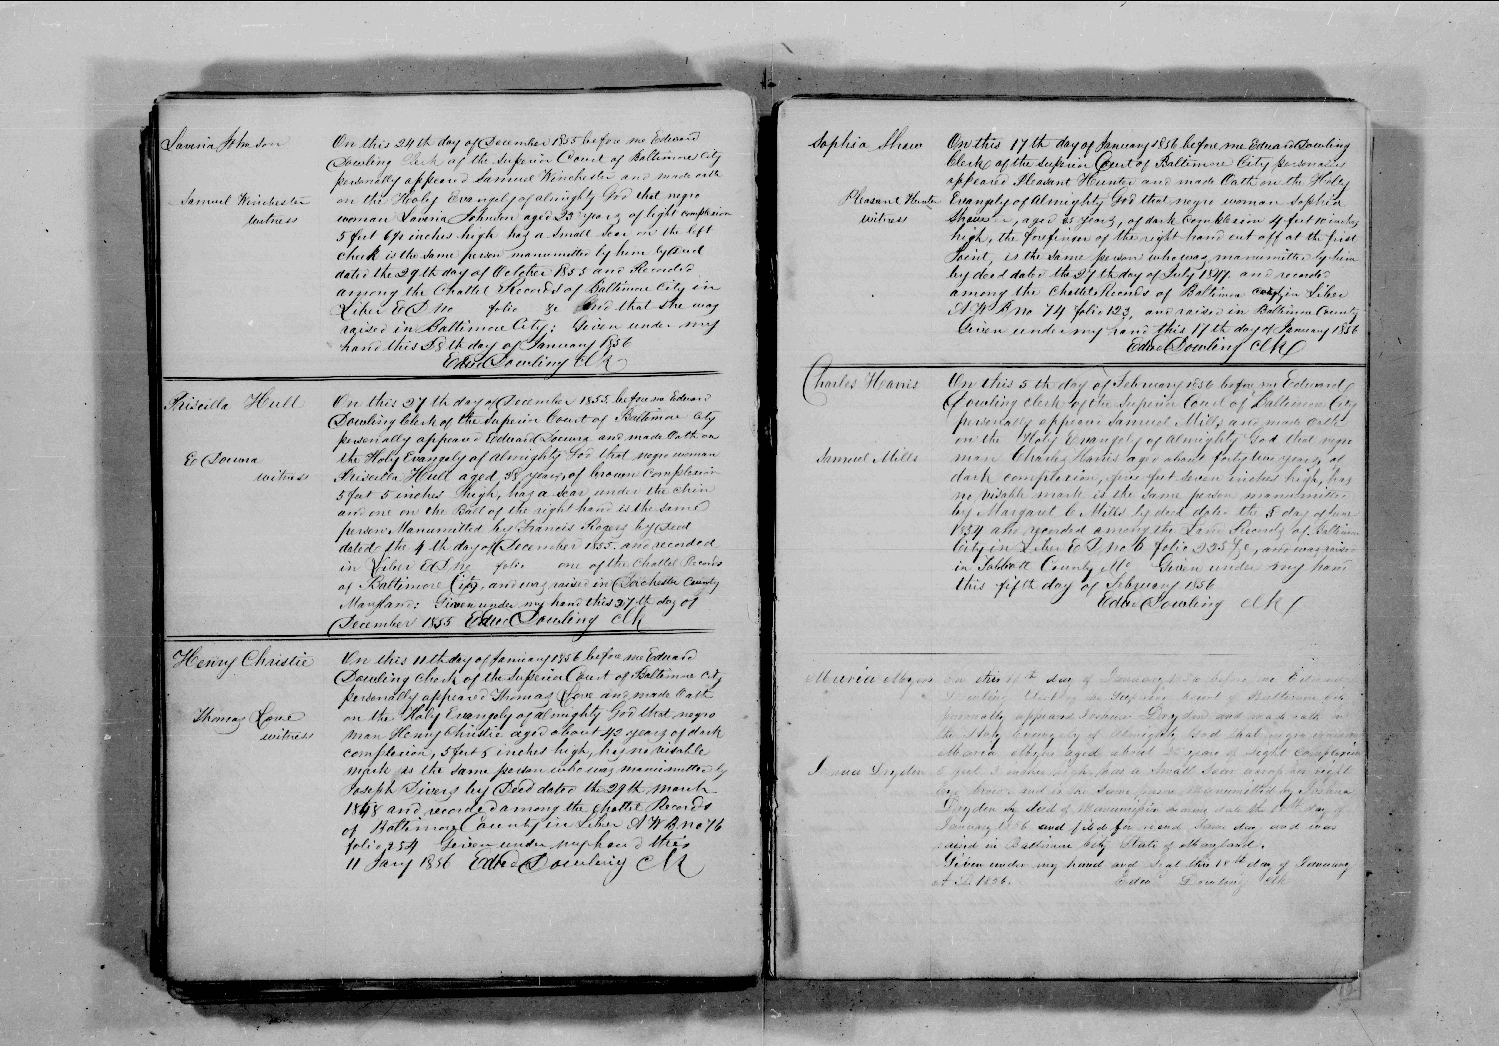 Lavinia Johnson
Samuel Winchester
witness
On this 24th day of December 1855 before me Edward
Dowling Clerk of the Superior Court of Baltimore City
personally appeared Samuel Winchester and made oath
on the Holy Evangely of almighty God that negro
woman Lavinia Johnson aged years of light complexion
5 feet 6½ inches high has a small scar on the left
cheek is the same person manumitted by him by deed
dated the 29th day of October 1855 and Recorded
among the Chattel Records of Baltimore City in
Liber E D no folio &c and that she was
raised in Baltimore City: Given under my
hand this th day of January 1856
Edwd Dowling Clk
Priscilla Hull
Ed
witness
On this 27th day of December 1855 before me Edward
Dowling Clerk of the Superior Court of Baltimore City
personally appeared Edward and made Oath on
the Holy Evangely of almighty God that negro woman
Priscilla Hull aged 38 years, of brown Complexion
5 feet 5 inches high, has a scar under the chin
and one on the Ball of the right hand is the same
person Manumitted by Francis Rogers by Deed
dated the 4th day of December 1855 and recorded
in Liber E D no folio one of the Chattel Records
of Baltimore City, and was raised in Dorchester County
Maryland: Given under my hand this 27th day of
December 1855 Edwd Dowling Clk
Henry Christie
Thomas Love
witness
On this 11th day of January 1856 before me Edward
Dowling Clerk of the Superior Court of Baltimore City
personally appeared Thomas Love and made Oath
on the Holy Evangely of almighty God that negro
man Henry Christie aged about 42 years of dark
complexion, 5 feet 5 inches high, has no visable
mark is the same person who was manumitted by
Joseph Sivers by Deed dated the 29th march
1848 and recorded among the Chattel Records
of Baltimore County in Liber A W B no 76
folio 254 Given under my hand this
11 Jany 1856 Edwd Dowling Clk
Sophia Shaw
Pleasant Hunter
witness
On this 17th day of January 1856 before me Edward Dowling
Clerk of the Superior Court of Baltimore City personally
appeared Pleasant Hunter and made Oath on the Holy
Evangely of Almighty God that negro woman Sophia
Shaw, aged years, of dark Complexion 4 feet 10 inches
high, the forefinger of the right hand cut off at the first
Joint, is the same person who was manumitted by him
by deed dated the 27th day of July 1847 and recorded
among the Chattel Records of Baltimore in Liber
A W B no 74 folio 123, and raised in Baltimore County
Given under my hand this 17th day of January 1856
Edwd Dowling Clk
Charles Harris
Samuel Mills
On this 5th day of February 1856 before me Edward
Dowling clerk of the Superior Court of Baltimore City
personally appear Samuel Mills and made Oath
on the Holy Evangely of Almighty God that negro
man Charles Harris aged about forty two years, of
dark complexion, five feet seven inches high, has
no visable mark is the same person manumitted
by Margaret C Mills by deed dated the 5 day of June
1854 and recorded among the Land Records of Baltimore
City in Liber E D no 6 folio 225 &c, and was raised
in Talbott County Md Given under my hand
this fifth day of February 1856
Edwd Dowling Clk
Maria Myers
Dryden
On this day of January before me Edward
Dowling Clerk of the Superior Court of Baltimore City
personally appeared Joshua Dryden and made oath on
the Holy Evangely of Almighty God that negro woman
Maria Myers aged about years of light Complexion
5 feet 3 inches high, has a small scar across her right
eye brow and is the same person manumitted by Joshua
Dryden by deed of Manumission bearing date the day of
January 1856 and filed for record same day and was
raised in Baltimore City State of Maryland.
Given under my hand and Seal this 18th day of January
A D 1856. Edwd Dowling Clk